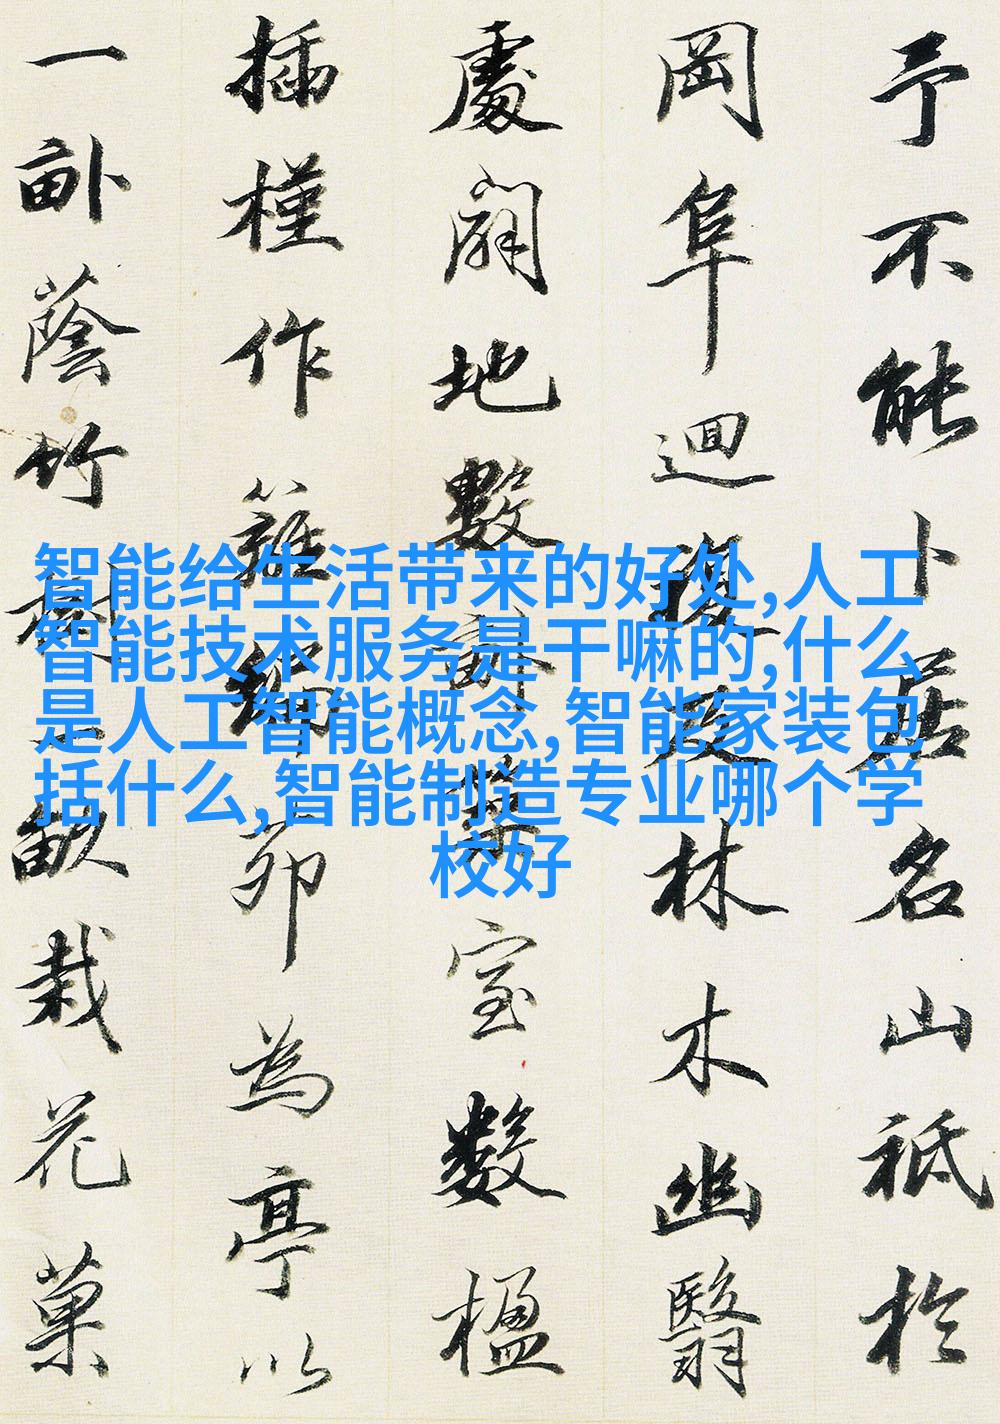 予不能卜居名山祗於
岡阜迴複及林木幽翳
處闢地數畝築室數楹
插槿作籬編茆為亭以
一畝蔭竹樹一畝栽花菓
智能给生活带来的好处,人工
智能技术服务是干嘛的,什么
是人工智能概念,智能家装包
括什么,智能制造专业哪个学
校好